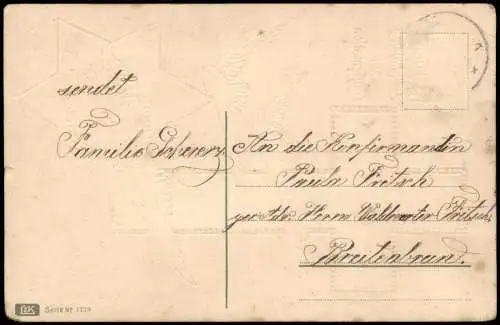 sendet
Familie Scheerz
An die Konfirmandin
Paula Fritsch
per Adr. Herrn Waldwarter Fritsch
Breitenbrun.
Serie № 1773